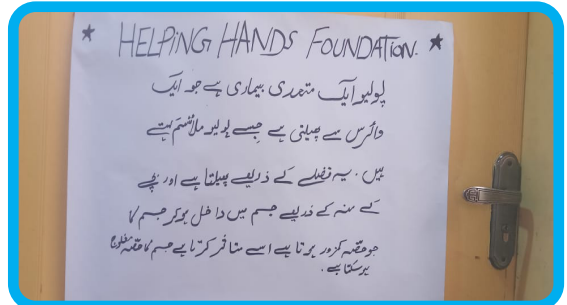 ★ HELPING HANDS FOUNDATION. ★
پولیو ایک متعدی بیماری ہے جو ایک
وائرس سے پھیلتی ہے جسے پولیو کہتے
ہیں۔ یہ فضلے کے ذریعے پھیلتا ہے اور بچے
کے منہ کے ذریعے جسم میں داخل ہوکر جسم کا
جو حصہ کمزور ہوتا ہے اسے متاثر کرتا ہے جسم کا حصہ مفلوج
ہو سکتا ہے۔